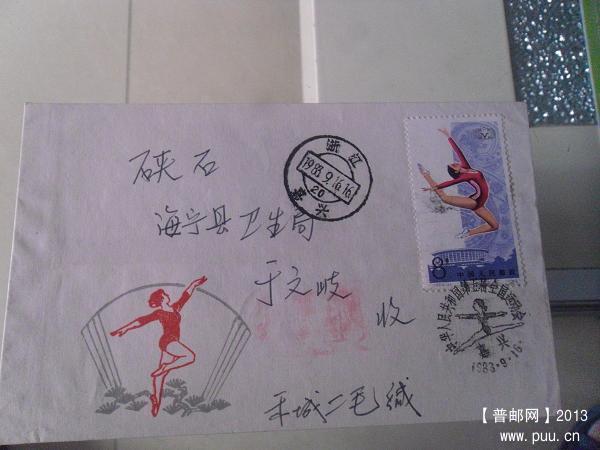 硖石
海宁县卫生局
于文岐
收
禾城二毛缄
浙江
1983.9.16.16
20
嘉兴
8分
中国人民邮政
中华人民共和国第五届全国运动会
嘉兴
1983·9·16.
【普邮网】2013
www.puu.cn